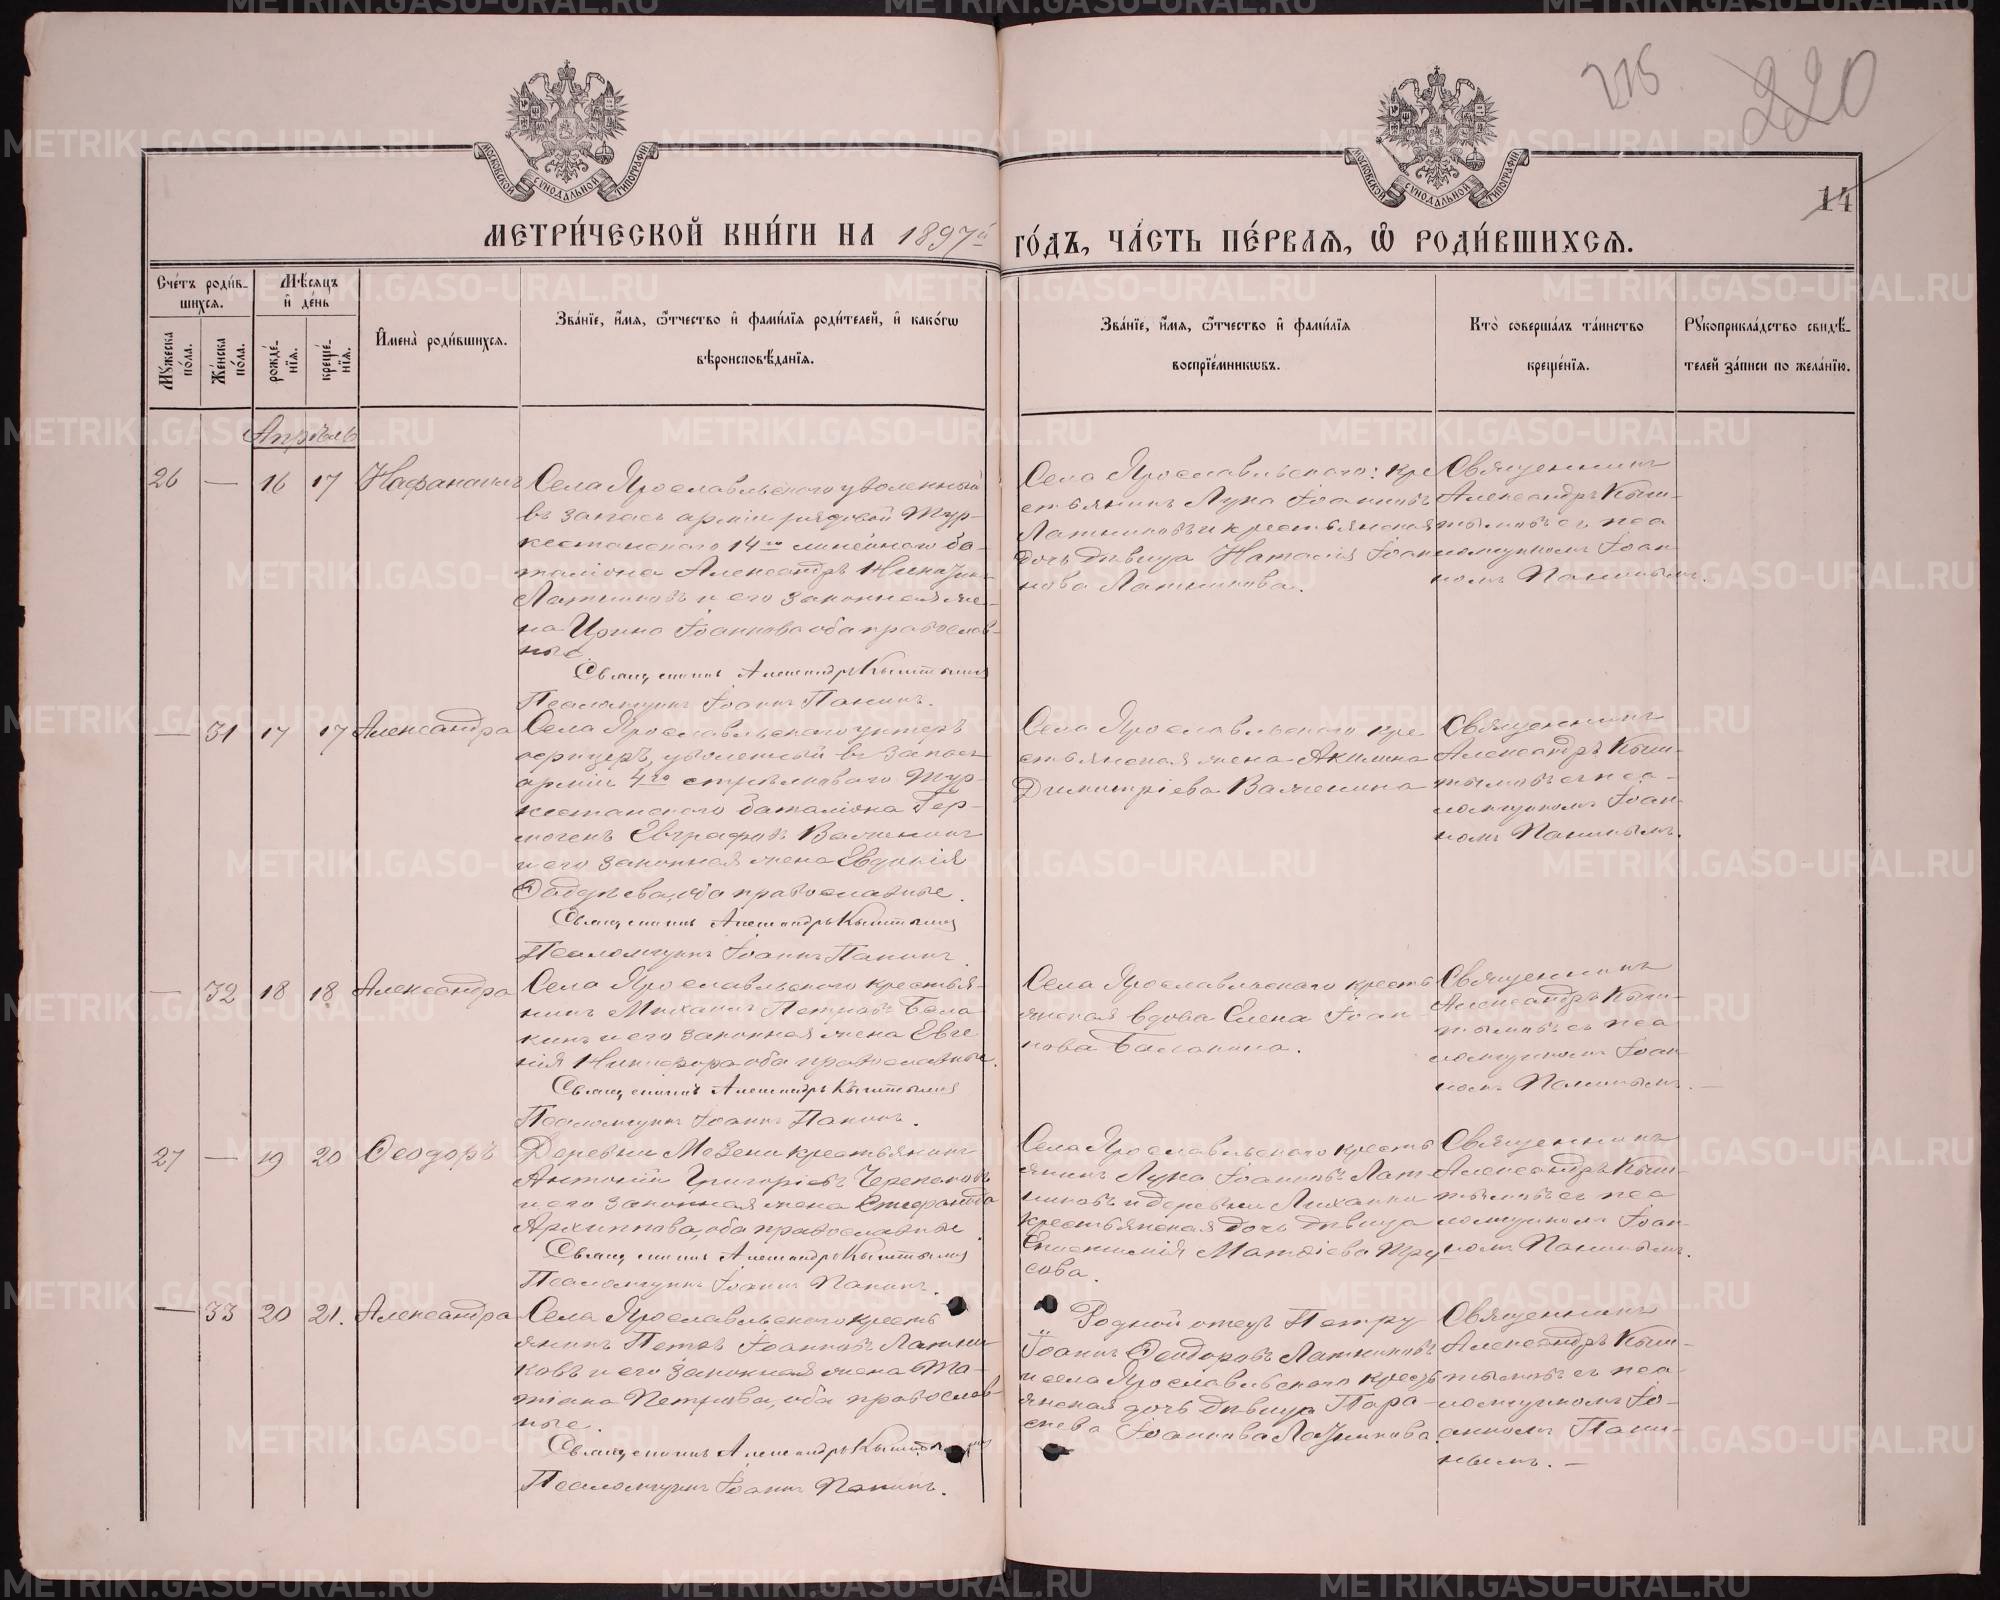 215
220
МОСКОВСКОЙ СѴНОДАЛЬНОЙ ТИПОГРАФІИ
МОСКОВСКОЙ СѴНОДАЛЬНОЙ ТИПОГРАФІИ
14
МЕТРИ́ЧЕСКОЙ КНИ́ГИ НА 1897й ГО́ДЪ, ЧА́СТЬ ПЕ́РВАЯ, Ѽ РОДИ́ВШИХСЯ.
Сче́тъ роди́в-
шихся.
Мꙋжеска по́ла.
Же́нска по́ла.
Мѣ́сяцъ
и҆ де́нь
рожде́нїя.
креще́нїя.
И҆мена̀ роди́вшихся.
Зва́нїе, и҆́мя, ѻ҆́тчество и҆ фами́лїя роди́телей, и҆ како́гѡ
вѣроисповѣ́данїя.
Зва́нїе, и҆́мя, ѻ҆́тчество и҆ фами́лїя
воспрїе́мникѡвъ.
Кто̀ соверша́лъ та́инство
креще́нїя.
Рꙋкоприкла́дство свидѣ́-
телей за́писи по жела́нїю.
Апрѣль
26 — 16 17 Нафанаилъ
Села Ярославльскаго уволенный
въ запасъ арміи рядовой Тур-
кестанскаго 14го линейнаго ба-
таліона Александръ
Латниковъ и его законная же-
на Ирина Іоаннова оба православ-
ные
Священникъ Александръ Кыштымовъ
Псаломщикъ Іоаннъ Панинъ.
Села Ярославльскаго: кре
стьянинъ Лука Іоанновъ
Латниковъ и крестьянская
дочь дѣвица Наталія Іоан
нова Латникова.
Священникъ
Александръ Кыш-
тымовъ съ пса
ломщикомъ Іоан
номъ Панинымъ.
— 31 17 17 Александра
Села Ярославльскаго унтеръ
офицеръ, уволенный въ запасъ
арміи 4го стрѣлковаго Тур-
кестанскаго баталіона Гер-
могенъ Евграфовъ
и его законная жена Евдокія
Фаддѣева, оба православные.
Священникъ Александръ Кыштымовъ
Псаломщикъ Іоаннъ Панинъ.
Села Ярославльскаго кре
стьянская жена Акилина
Димитріева
Священникъ
Александръ Кыш-
тымовъ съ пса-
ломщикомъ Іоан
номъ Панинымъ.
— 32 18 18 Александра
Села Ярославльскаго крестья-
нинъ Михаилъ Петровъ Бала
кинъ и его законная жена Евге
нія Никифорова оба православные.
Священникъ Александръ Кыштымовъ
Псаломщикъ Іоаннъ Панинъ.
Села Ярославльскаго кресть
янская вдова Елена Іоан
нова Балакина.
Священникъ
Александръ Кыш-
тымовъ съ пса
ломщикомъ Іоан
номъ Панинымъ. —
27 — 19 20 Ѳеодоръ
Деревни Мезени крестьянинъ
Антоній Григорьевъ Черепановъ
и его законная жена Стефанида
Архиппова, оба православные.
Священникъ Александръ Кыштымовъ
Псаломщикъ Іоаннъ Панинъ.
Села Ярославльскаго кресть
янинъ Лука Іоанновъ Лат
никовъ и деревни
крестьянская дочь дѣвица
Матѳіева Тру
сова.
Священникъ
Александръ Кыш-
тымовъ съ пса
ломщикомъ Іоан
номъ Панинымъ.
— 33 20 21. Александра
Села Ярославльскаго кресть
янинъ Петръ Іоанновъ Латни
ковъ и его законная жена Та-
тіана Петрова, оба православ
ные.
Священникъ Александръ Кыштымовъ
Псаломщикъ Іоаннъ Панинъ.
Родной отецъ Петру
Іоаннъ Ѳеодоровъ Латниковъ
и села Ярославльскаго кресть
янская дочь дѣвица Пара-
скева Іоаннова
Священникъ
Александръ Кыш-
тымовъ съ пса-
ломщикомъ Іо-
анномъ Пани-
нымъ. —
METRIKI.GASO-URAL.RU